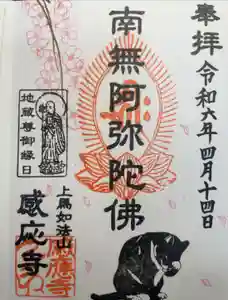 奉拝
令和六年四月十四日
南無阿弥陀佛
地蔵尊御縁日
上馬如法山
感応寺